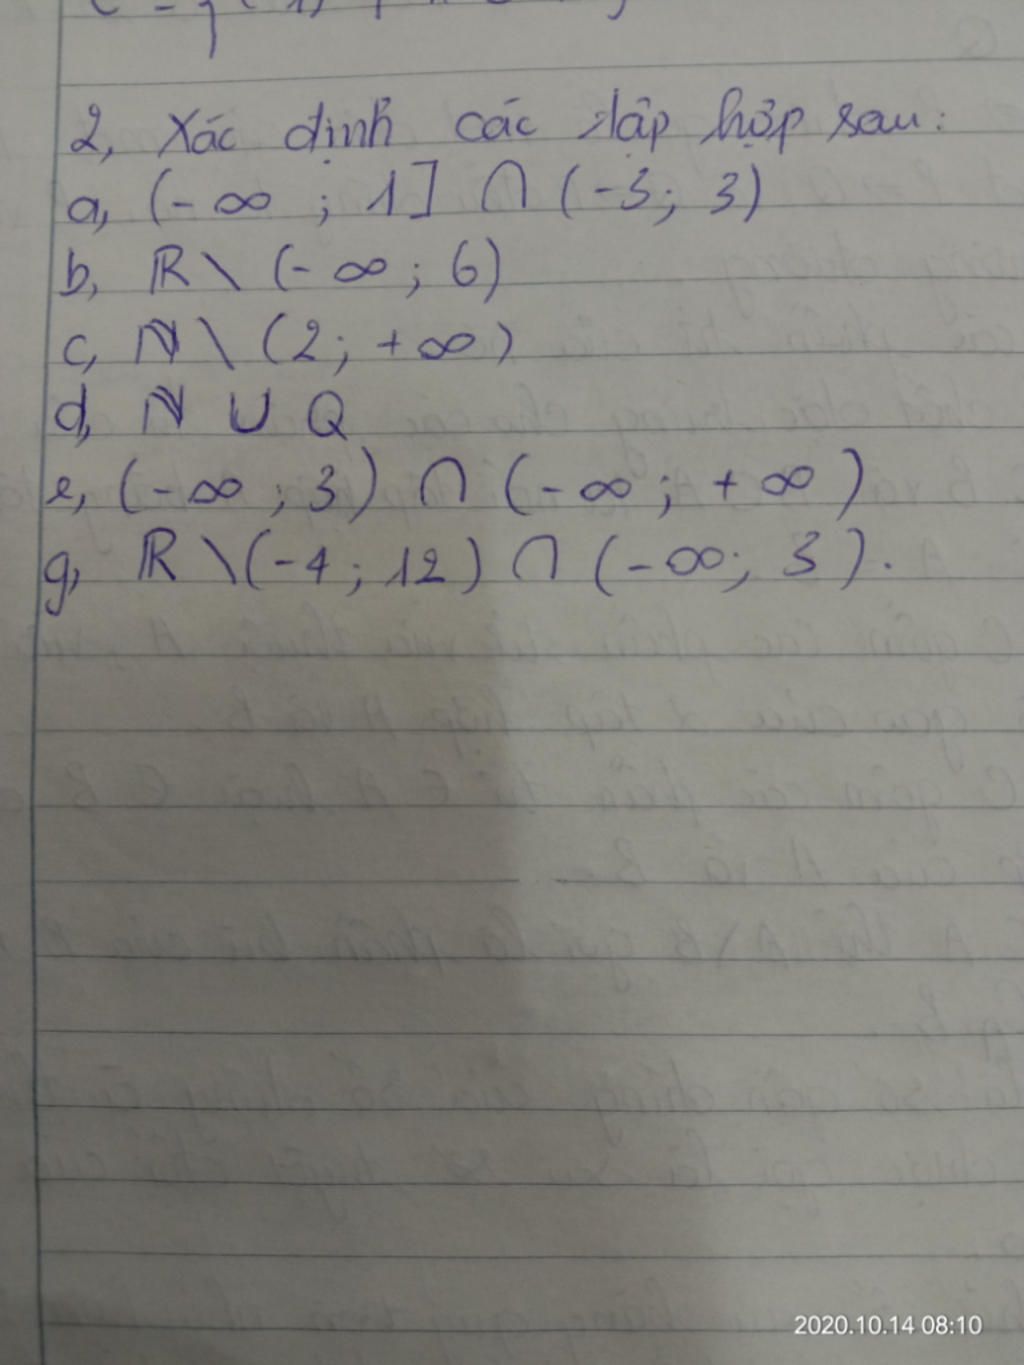 2, Xác định các tập hợp sau:
a, (-∞ ; 1] ∩ (-3; 3)
b, ℝ \ (-∞ ; 6)
c, ℕ \ (2; +∞)
d, ℕ ∪ Q
e, (-∞ ; 3) ∩ (-∞ ; +∞)
g, ℝ \ (-4 ; 12) ∩ (-∞; 3).
2020.10.14 08:10